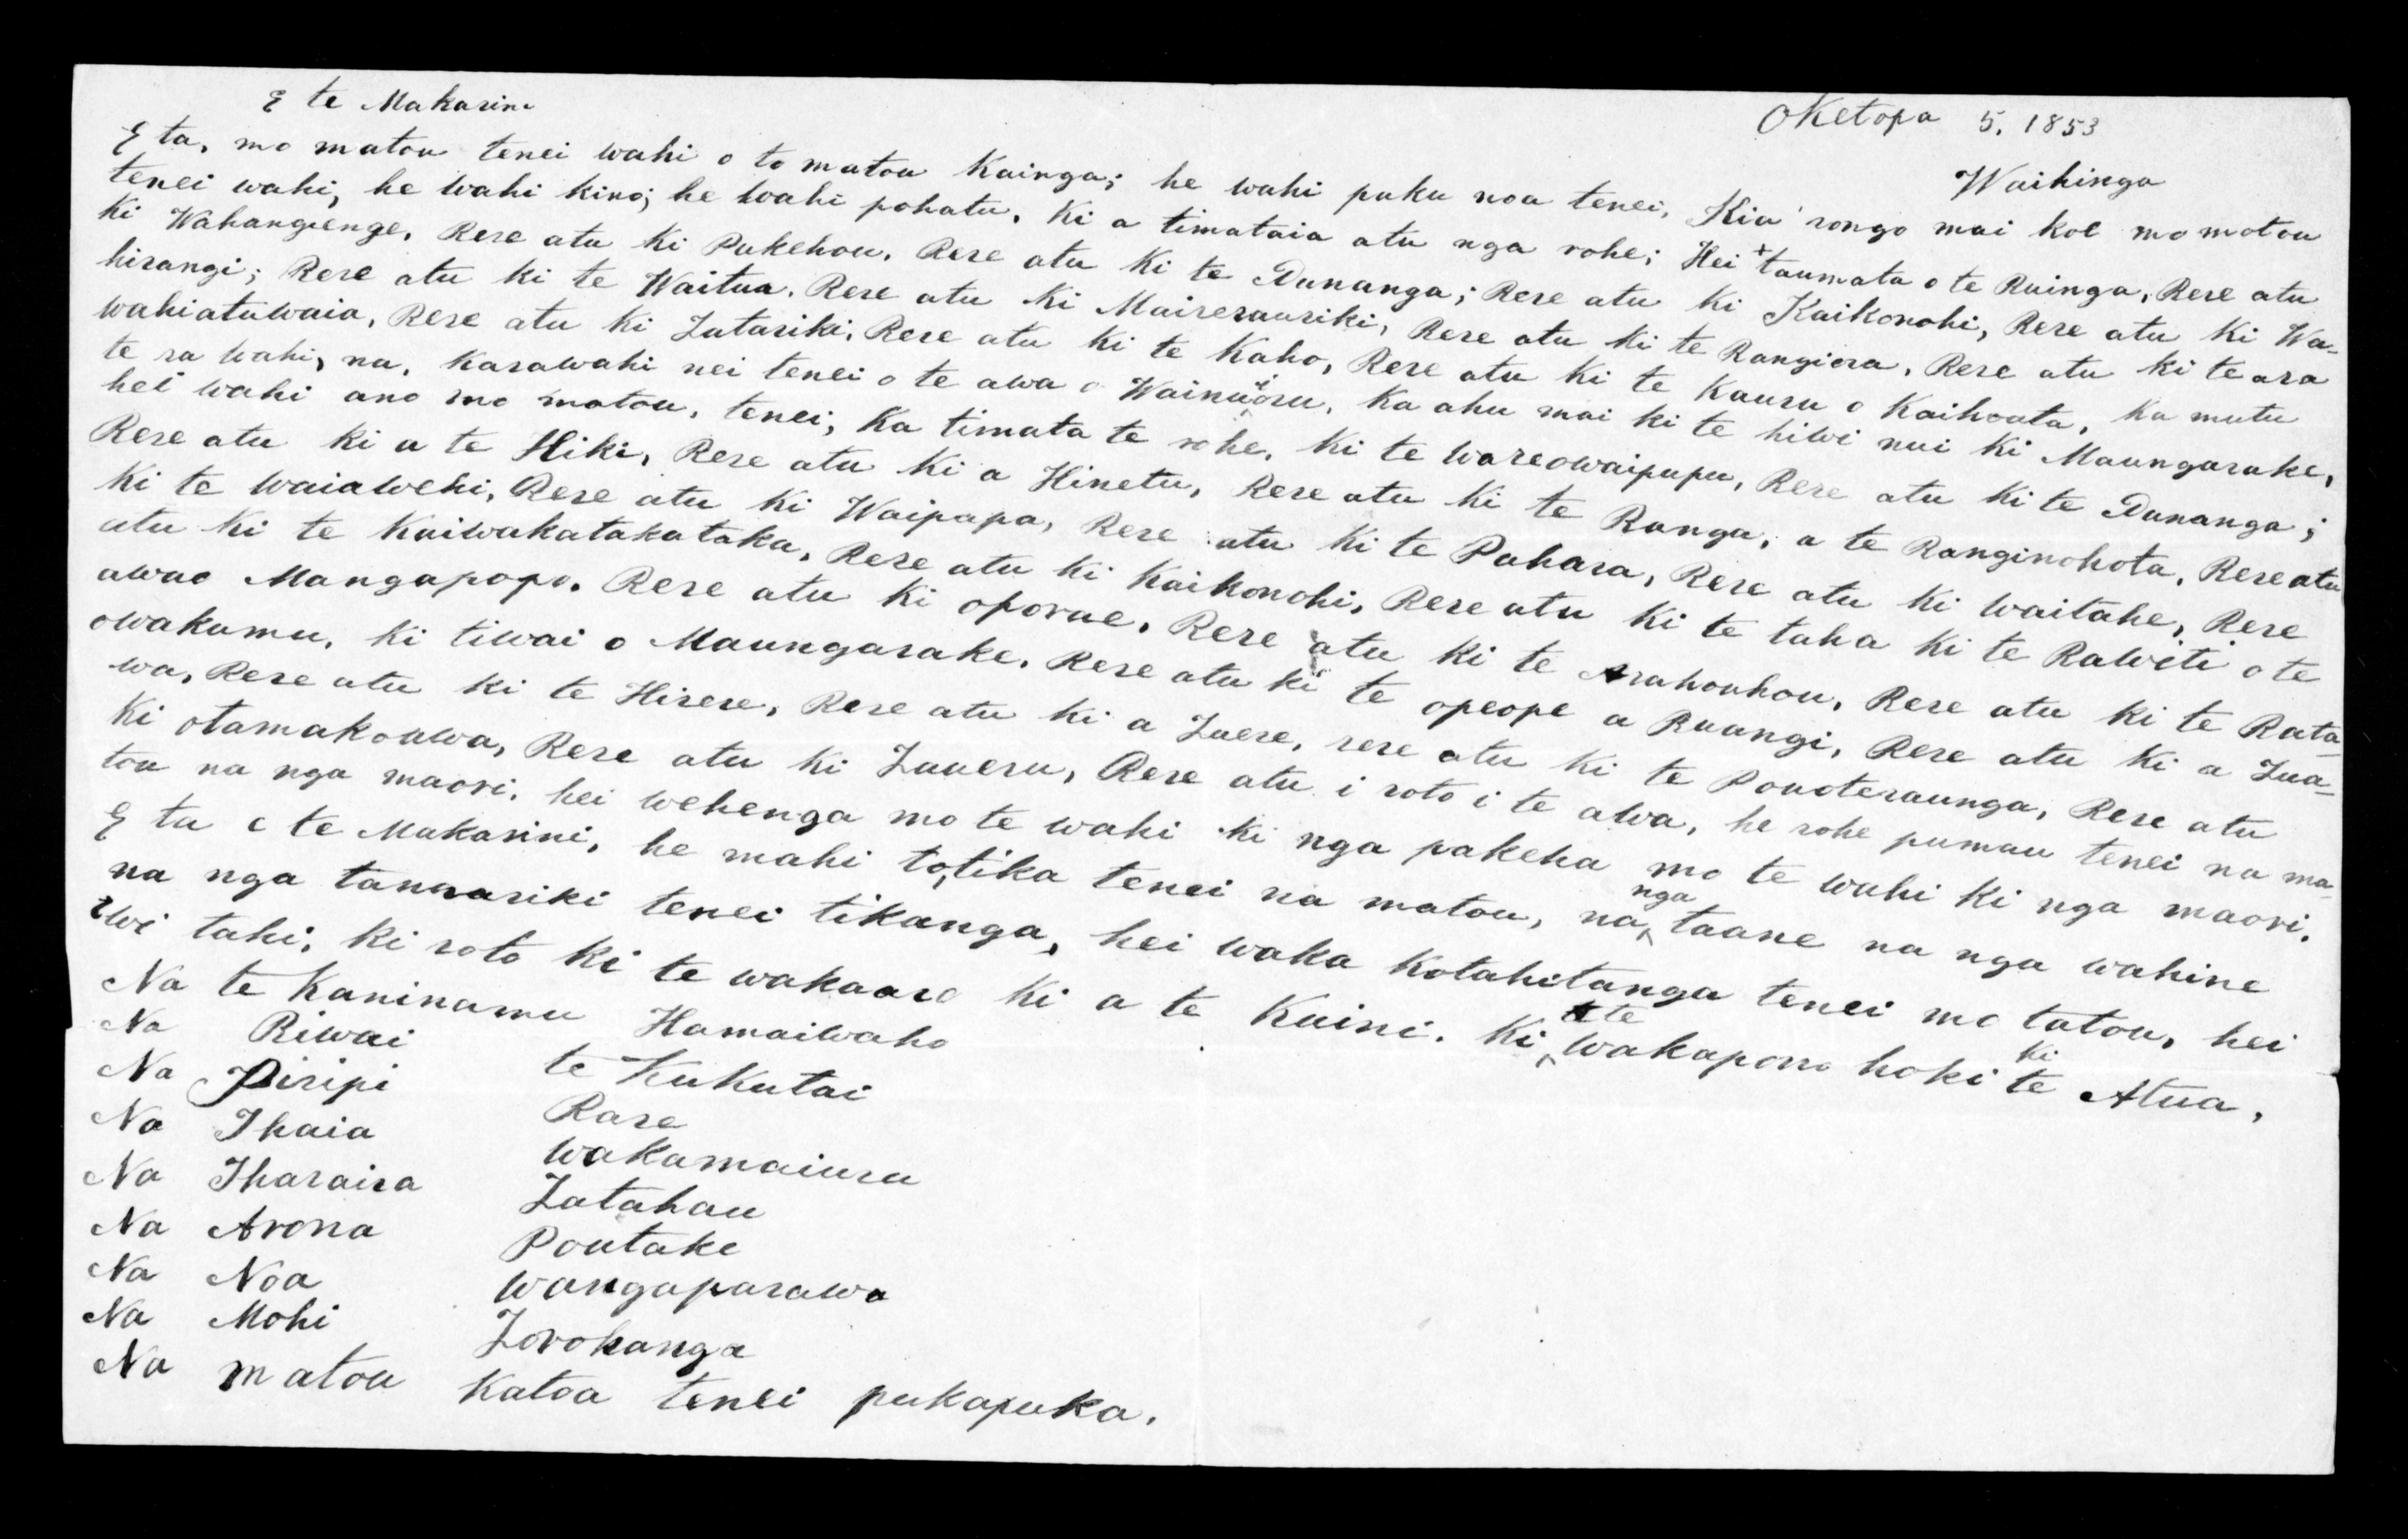 Oketopa 5, 1853
Waihinga
E te Makarini
E ta, mo matou tenei wahi o to matou Kainga; he wahi paku noa tenei, Kia rongo mai koe mo matou
tenei wahi, he wahi kino; he wahi pohatu, Ki a timataia atu nga rohe; Hei taumata o te Ruinga, Rere atu
ki Wahangienge, Rere atu Ki Pukehou, Rere atu Ki te Dunanga; Rere atu Ki Kaikonohi, Rere atu Ki Wa-
hirangi; Rere atu ki te Waitua. Rere atu Ki Mairerauriki, Rere atu ki te Rangiora, Rere atu ki te ara
wahiatuwaia, Rere atu Ki Tutariki, Rere atu Ki te Kaho, Rere atu Ki te Kauru o Kaihoata, Ka mutu
te ra wahi, na, Karawahi nei tenei o te awa o Wainuioru, Ka ahu mai ki te hiwi nui Ki Maungarake,
hei wahi ano mo matou, tenei; Ka timata te rohe, Ki te wareowaipupu, Rere atu Ki te Dunanga;
Rere atu ki a te Hiki, Rere atu Ki a Hinetu, Rere atu Ki te Runga, a te Ranginohota, Rere atu
Ki te Waiawehi, Rere atu Ki Waipapa, Rere atu Ki te Pahara, Rere atu Ki Waitahe, Rere
atu Ki te Kaiwakatakataka, Rere atu Ki Kaikonohi, Rere atu Ki te taha Ki te Rawiti o te
awao Mangapopo. Rere atu Ki oporae, Rere atu Ki te Arahouhou, Rere atu Ki te Rata-
owakumu, Ki tiwai o Maungarake, Rere atu ki te opeope a Ruangi, Rere atu Ki a Tua-
wa, Rere atu ki te Hirere, Rere atu Ki a Tuere, rere atu Ki te Pouoteraunga, Rere atu
Ki otamakouwa, Rere atu Ki Tuueru, Rere atu i roto i te awa, he rohe pumau tenei na ma-
tou na nga maori, hei wehenga mo te wahi Ki nga pakeha mo te wahi Ki nga maori.
E ta e te Makarini, he mahi totika tenei na matou, na nga taane na nga wahine
na nga tamariki tenei tikanga, hei waka Kotahitanga tenei mo tatou, hei
iwi tahi, ki roto Ki te wakaaro Ki a te Kuini. Ki te wakapono hoki ki te Atua,
Na te Kaninamu Hamaiwaho
Na Riwai te Kukutai
Na Piripi Rare
Na Ihaia Wakamaiuru
Na Iharaira Tatahau
Na Arona Poutake
Na Noa Wangaparawa
Na Mohi Torohanga
Na matou Katoa tenei pukapuka.